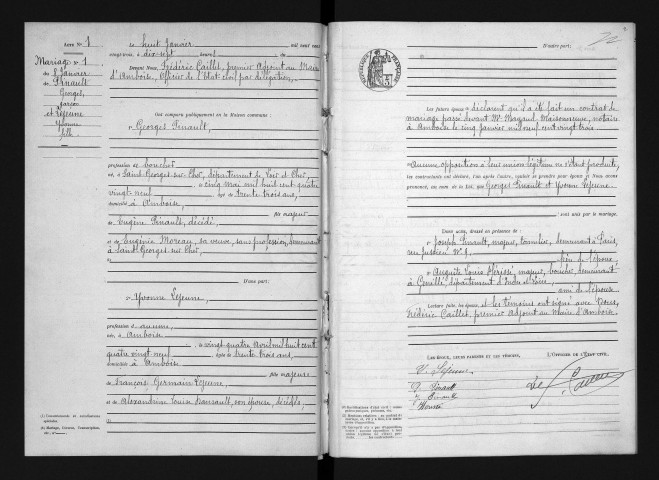 Acte N° 1
Mariage N° 1
du 8 Janvier
de Pinault
Georges,
garçon
et Lejeune
Yvonne
fille
(1) Énonciations et rectifications
spéciales.
Le huit Janvier mil neuf cent
vingt-trois, à dix-sept heures
Devant Nous, Frédéric Caillet, premier Adjoint au Maire
d'Amboise, Officier de l'état civil par délégation,
Ont comparu publiquement en la Maison commune :
Georges Pinault,
profession de boucher
né à Saint-Georges-sur-Cher, département de Loir et Cher,
le cinq mai mil huit cent quatre
vingt-neuf, âgé de trente trois ans,
domicilié à Amboise,
fils majeur
de Eugène Pinault, décédé,
et de Eugénie Moreau, sa veuve, sans profession, demeurant
à Saint-Georges-sur-Cher,
D'une part;
Yvonne Lejeune,
profession d'aucune,
née à Amboise
le vingt-quatre Avril mil huit cent
quatre vingt neuf, âgée de trente trois ans,
domiciliée à Amboise,
fille majeure
de François Germain Lejeune,
et de Alexandrine Louise, son épouse, décédés,
D'autre part;
22
RÉPUBLIQUE FRANÇAISE
Les futurs époux déclarent qu'il a été fait un contrat de
mariage passé devant Me, notaire
à Amboise le cinq janvier mil neuf cent vingt trois.
aucune opposition à leur union légitime ne s'étant produite,
les contractants ont déclaré, l'un après l'autre, vouloir se prendre pour époux et Nous avons
prononcé, au nom de la loi, que Georges Pinault et Yvonne Lejeune
sont unis par le mariage.
Dont acte, dressé en présence de :
Joseph Pinault, majeur, demeurant à Paris,
rue
frère de l'époux,
Auguste Louis, majeur, boucher, demeurant
à Genillé, département d'Indre et Loire,
ami de l'épouse.
Lecture faite, les époux et les témoins ont signé avec Nous,
Frédéric Caillet, premier Adjoint au Maire d'Amboise.
LES ÉPOUX, LEURS PARENTS ET LES TÉMOINS,
L'OFFICIER DE L'ÉTAT CIVIL,
Y. Lejeune
G. Pinault
J. Pinault